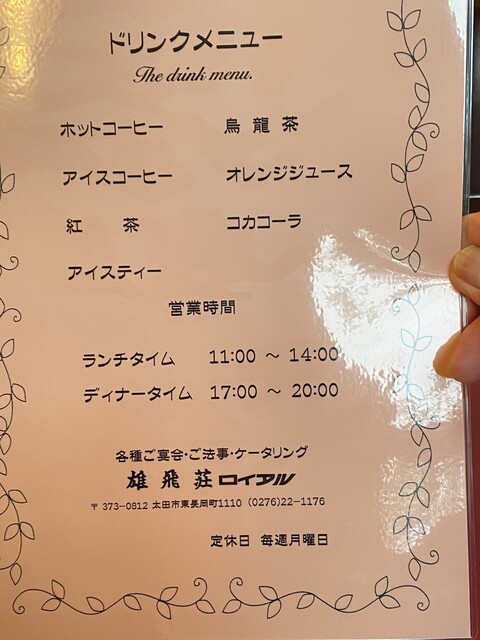 ドリンクメニュー
The drink menu.
ホットコーヒー 烏龍茶
アイスコーヒー オレンジジュース
紅 茶 コカコーラ
アイスティー
営業時間
ランチタイム 11:00 ～ 14:00
ディナータイム 17:00 ～ 20:00
各種ご宴会・ご法事・ケータリング
雄飛荘ロイアル
〒373-0812 太田市東長岡町1110 (0276)22-1176
定休日 毎週月曜日